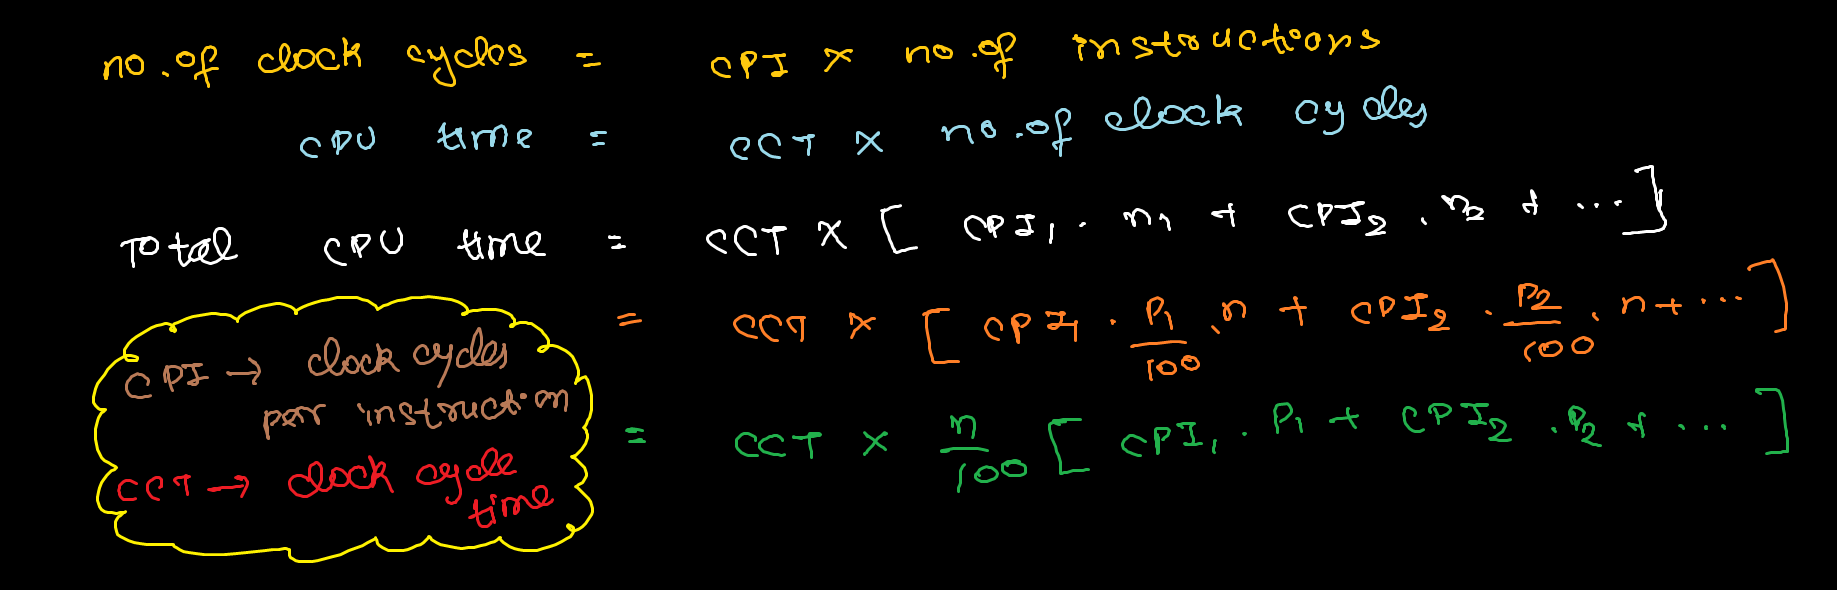 no. of clock cycles = CPI × no. of instructions
CPU time = CCT × no. of clock cycles
Total CPU time = CCT × [ CPI₁ . n₁ + CPI₂ . n₂ + ... ]
= CCT × [ CPI₁ . P₁/100 . n + CPI₂ . P₂/100 . n + ... ]
= CCT × n/100 [ CPI₁ . P₁ + CPI₂ . P₂ + ... ]
CPI → clock cycles
per instruction
CCT → clock cycle
time